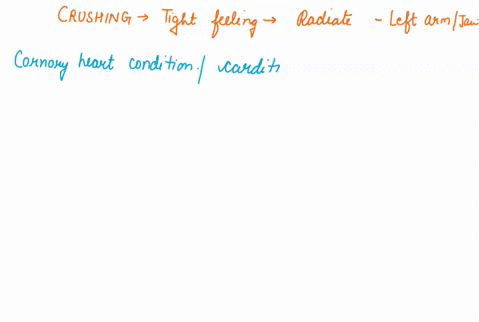 CRUSHING → Tight feeling → Radiate - Left arm/Jaw
Cornory heart condition/ carditi